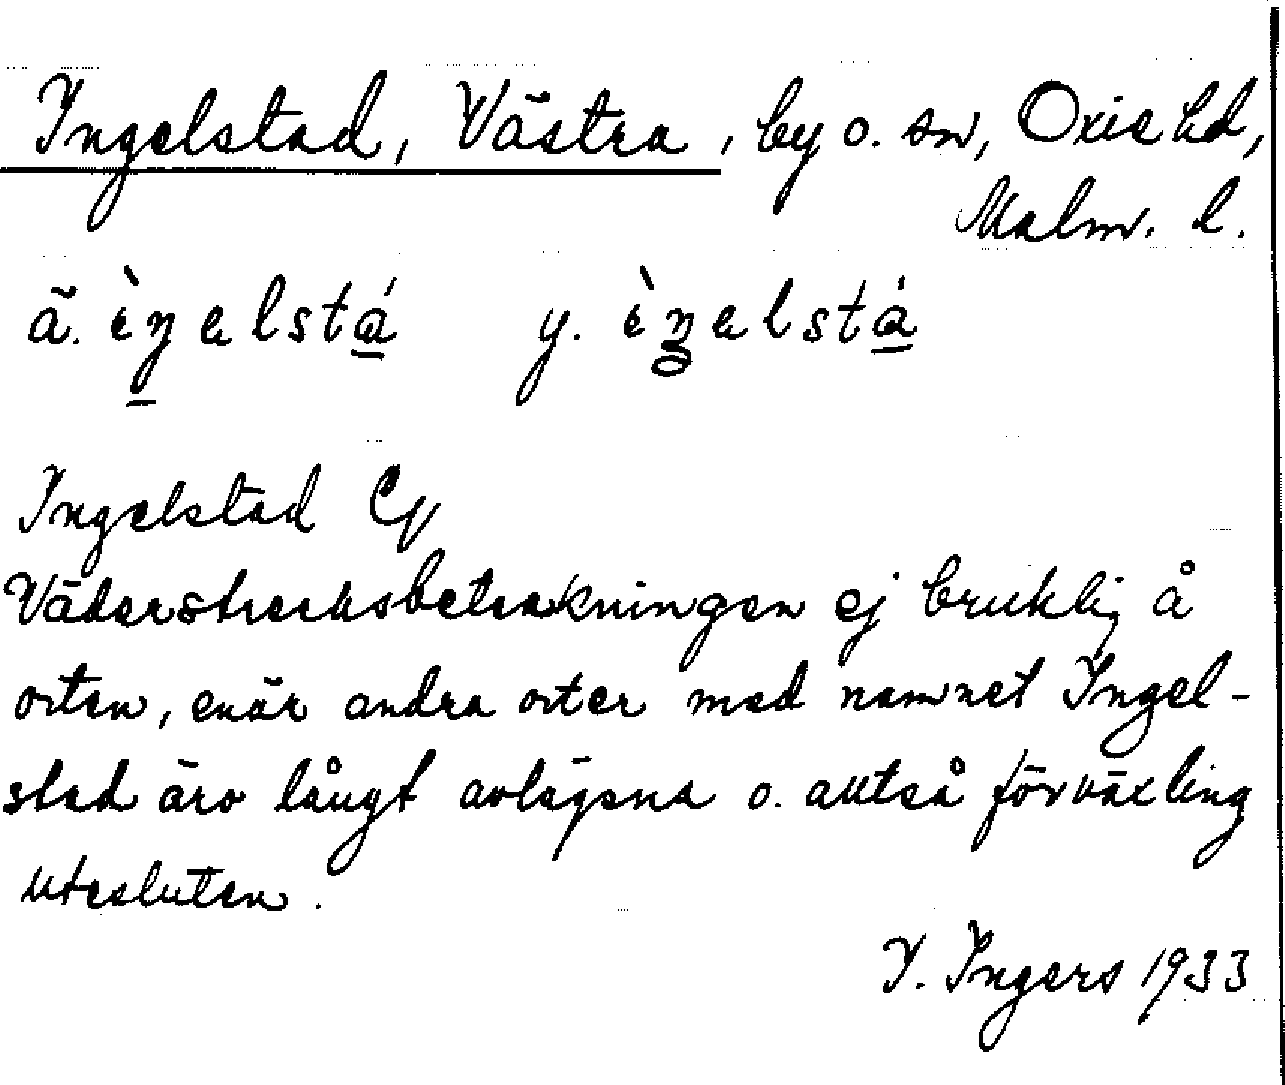 Ingelstad, Västra, by o. sn, Oxie hd,
Malm. l.
ä. ìŋəlstá y. ìŋəlstá
Ingelstad
Väderstrecksbeteckningen ej bruklig å
orten, enär andra orter med namnet Ingel-
stad äro långt avlägsna o. alltså förväxling
utesluten.
I. Ingers 1933